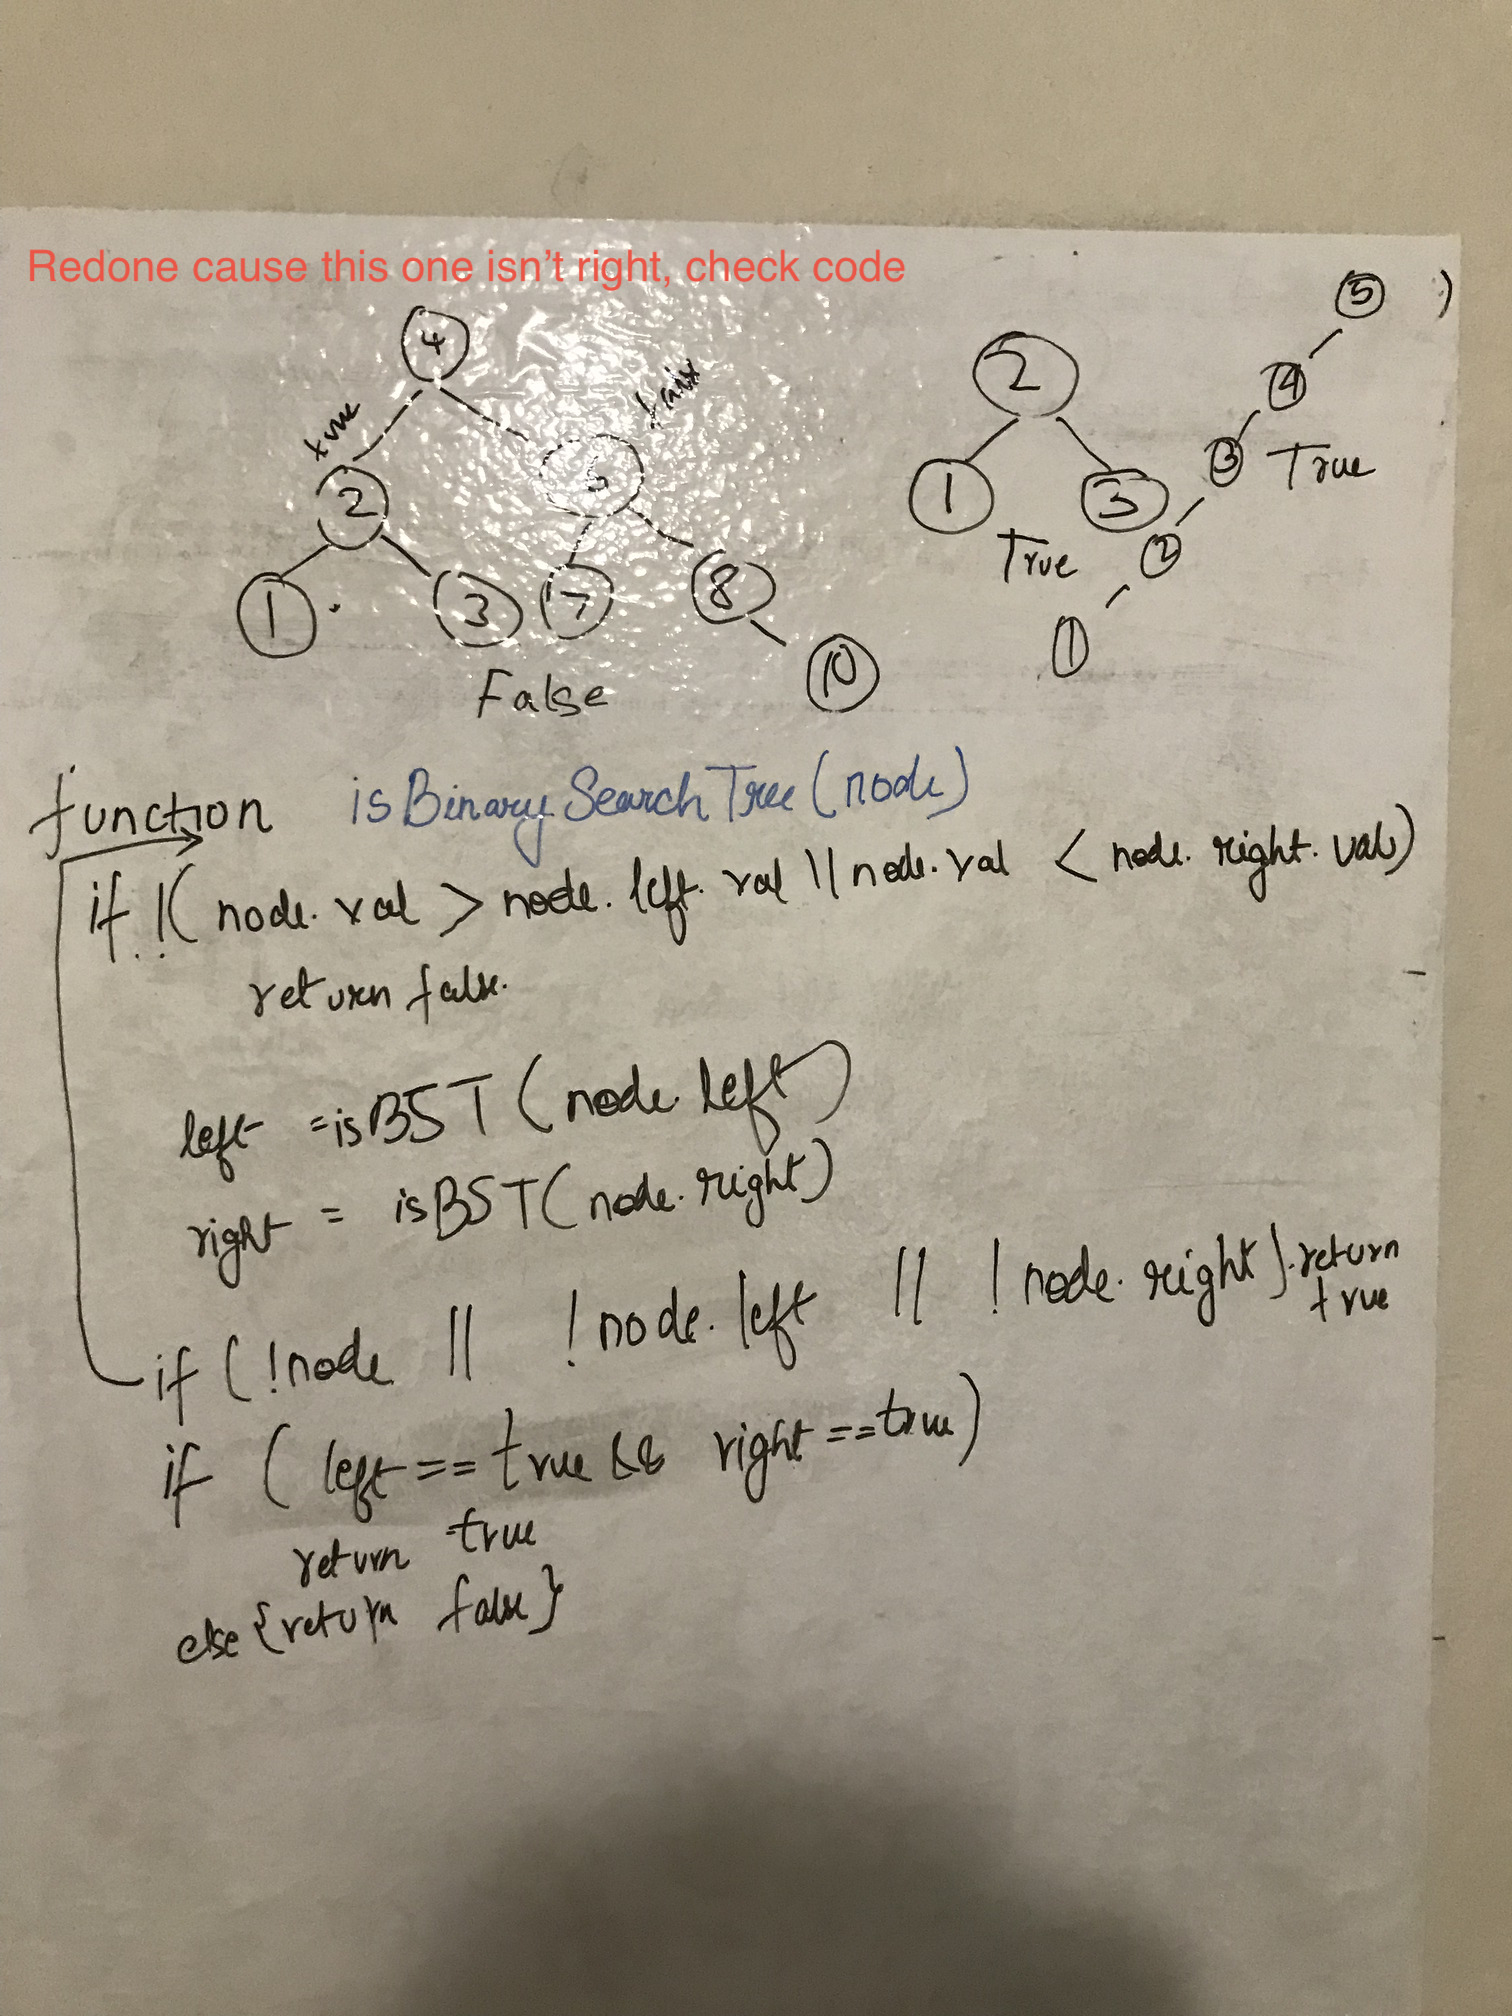 Redone cause this one isn't right, check code
4
true
false
2
1
3
7
8
10
False
2
1
3
True
5
4
3
2
1
True
)
function isBinarySearchTree(node)
if !(node.val > node.left.val || node.val < node.right.val)
return false.
left = isBST(node.left)
right = isBST(node.right)
if (!node || !node.left || !node.right) return
true
if (left == true && right == true)
return true
else {return false}